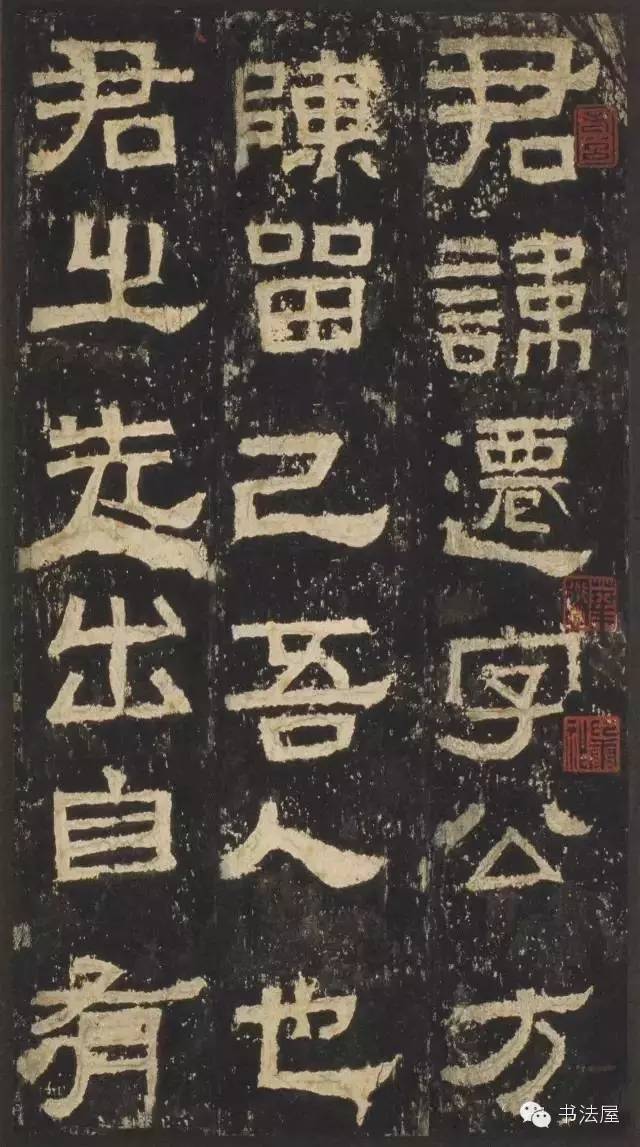 君諱遷字公方
陳留己吾人也
君之先出自有
书法屋